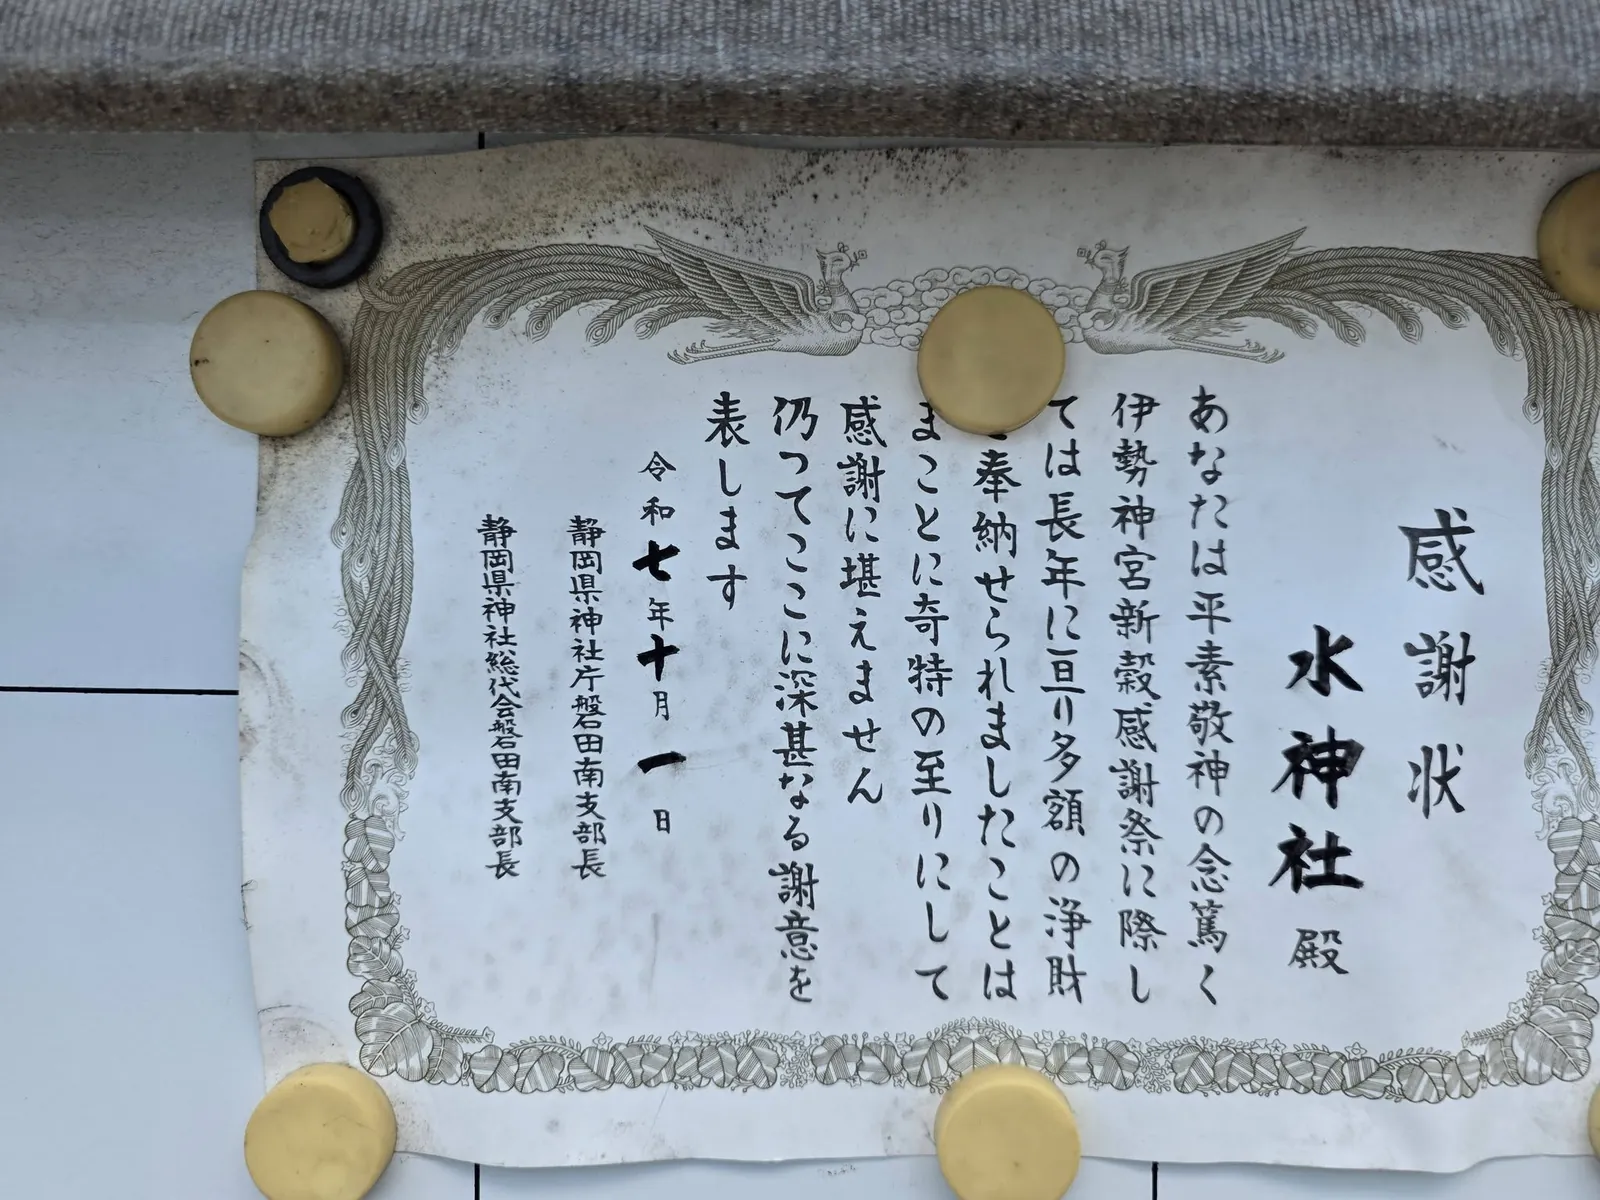 感謝状
水神社 殿
あなたは平素敬神の念篤く
伊勢神宮新穀感謝祭に際し
ては長年に亘り多額の浄財
奉納せられましたことは
まことに奇特の至りにして
感謝に堪えません
仍つてここに深甚なる謝意を
表します
令和七年十月一日
静岡県神社庁磐田南支部長
静岡県神社総代会磐田南支部長